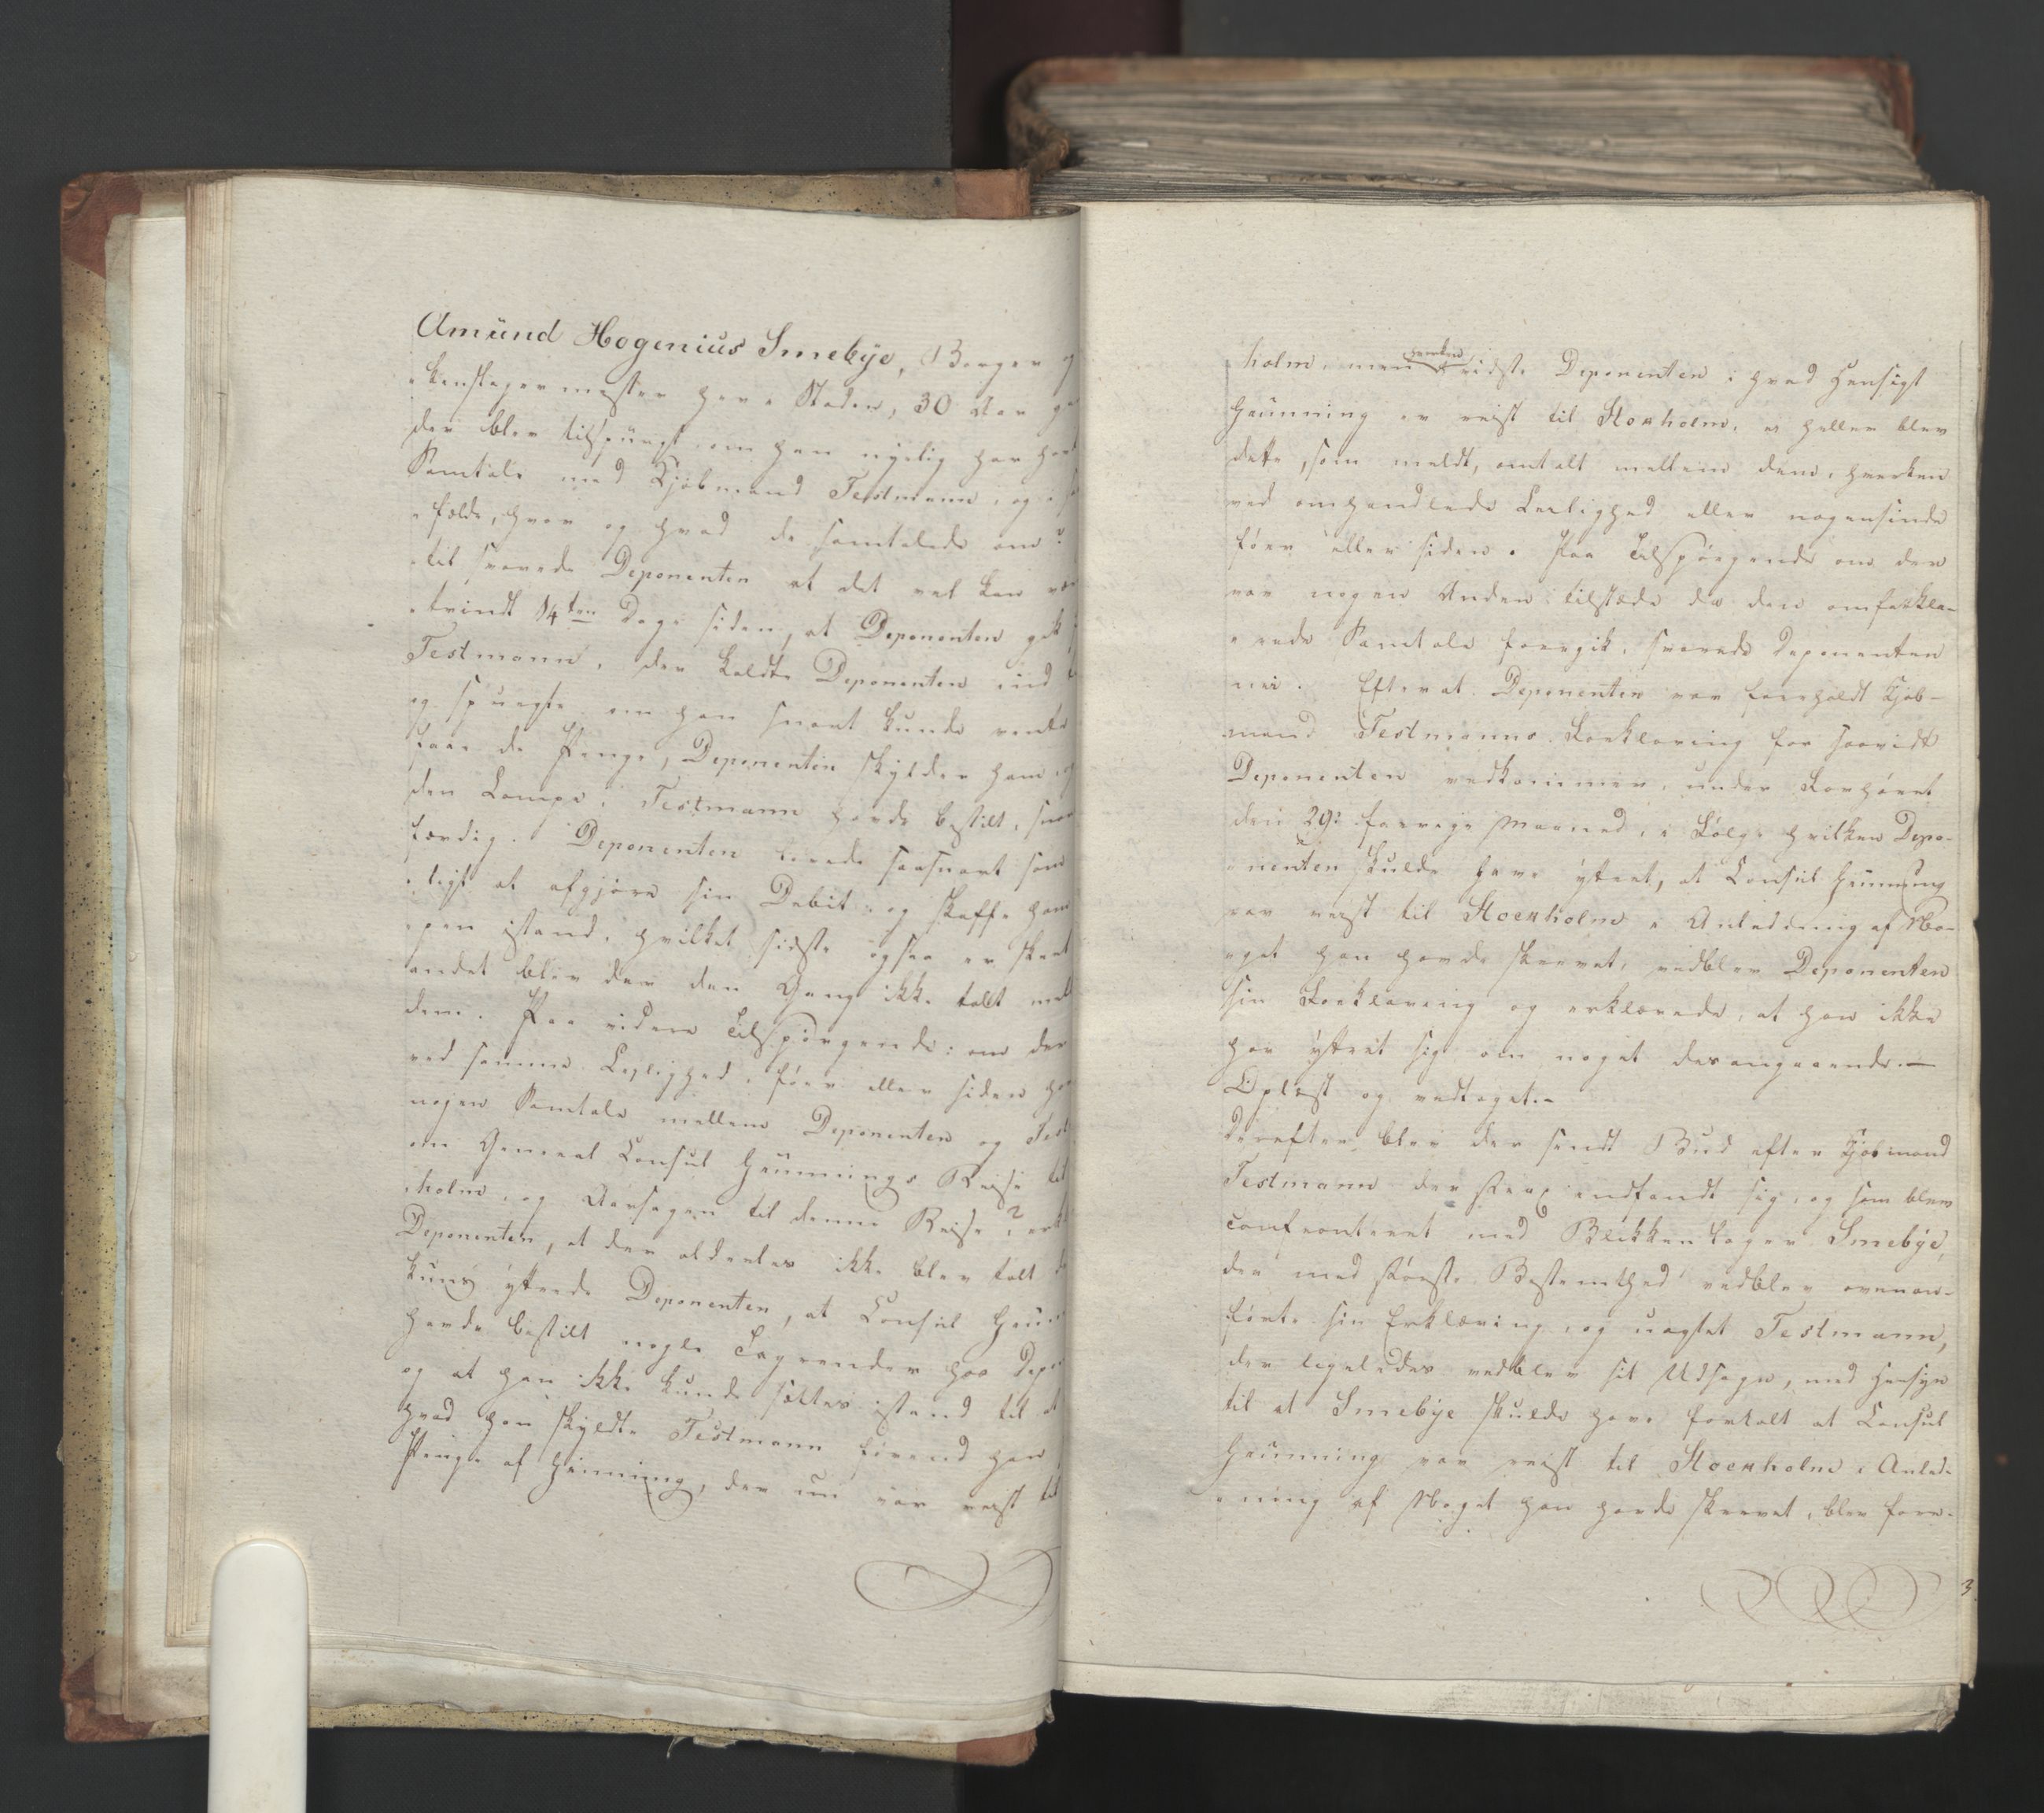 Amünd Hogenius Smebye, Borger og
kenslager mester her i Staden, 30 Aar ga
der blev tilspürgt om han nylig har havt
Samtale med Kjøbmand Testmann, og i saa
fælde, hvor og hvad de samtalede om?
til svarede Deponenten at det vel kan være
trindt 14ten Dage siden, at Deponenten gik
Testmann, der kaldte Deponenten ind
og spurgte om han snart kunde vente
faae de Penge, Deponenten skylder ham, og
den Lampe, Testmann havde bestilt, snart
færdig. Deponenten lovede saasnart som
ligt at afgjøre sin Debit og skaffe ham
pen istand, hvilket sidste ogsaa er skeet
andet blev der den Gang ikke talt mell
dem. Paa videre Tilspørgende: om der
ved samme Leylighed, før eller siden har
nogen Samtale mellem Deponenten og Test
om General Consul Grünnings Reise til
holm, og Aarsagen til denne Reise? erkl
Deponenten, at der aldeeles ikke blev talt
kuns yttrede Deponenten, at Consul Grün
havde bestilt nogle Tagrender hos Depo
og at han ikke kunde sættes istand til at
hvad han skyldte Testmann førend han
Penge af Grünning, der nu var reist til
holm, men hverken vidste Deponenten i hvad Hensigt
Grünning er reist til Stokholm, ei heller blev
dette, som meldt, omtalt mellem dem, hverken
ved omhandlede Leylighed eller nogensinde
førr eller siden. Paa Tilspørgende om der
var nogen Anden tilstæde da den omforkla-
rede Samtale foregik, svarede Deponenten
nei. Efter at Deponenten var foreholdt Kjøb-
mand Testmanns Forklaring for saavidt
Deponenten vedkommer, under Forhøret
den 29: forrige Maaned, i Følge hvilken Depo-
nenten skulde have yttret, at Consul Grünning
var reist til Stockholm i Anledning af No-
get han havde skrevet, vedblev Deponenten
sin Forklaring og erklærede, at han ikke
har yttret sig om noget desangaaende.—
Oplæst og vedtaget.-
Derefter blev der sendt Bud efter Kjøbmand
Testmann der strax indfandt sig, og som blev
confronteret med Blikkenslager Smebye,
der med største Bestemthed vedblev ovenan-
førte sin Erklæring, og uagtet Testmann,
der ligeledes vedblev sit Udsagn, med Hensyn
til at Smebye skulde have fortalt at Consul
Grünning var reist til Stockholm i Anled-
ning af Noget han havde skrevet, blev fore-
3